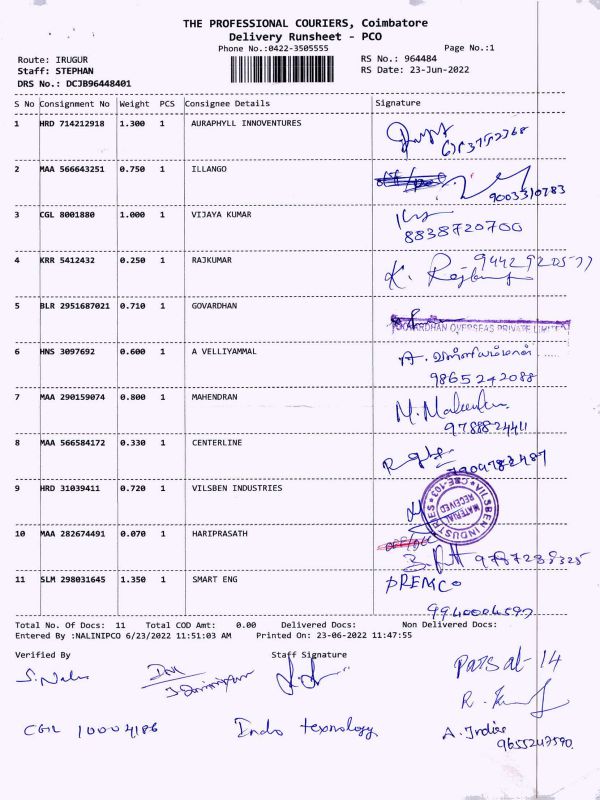 THE PROFESSIONAL COURIERS, Coimbatore
Delivery Runsheet - PCO
Phone No.:0422-3505555
Page No.:1
Route: IRUGUR
RS No.: 964484
Staff: STEPHAN
RS Date: 23-Jun-2022
DRS No.: DCJB96448401
S No Consignment No Weight PCS Consignee Details Signature
1 HRD 714212918 1.300 1 AURAPHYLL INNOVENTURES
2 MAA 566643251 0.750 1 ILLANGO
9003310783
3 CGL 8001880 1.000 1 VIJAYA KUMAR
8838720700
4 KRR 5412432 0.250 1 RAJKUMAR
K.
5 BLR 2951687021 0.710 1 GOVARDHAN
OVERSEAS PRIVATE LIMITED
6 HNS 3097692 0.600 1 A VELLIYAMMAL
A.
9865242088
7 MAA 290159074 0.800 1 MAHENDRAN
M.
9788824411
8 MAA 566584172 0.330 1 CENTERLINE
9 HRD 31039411 0.720 1 VILSBEN INDUSTRIES
VILSBEN INDUSTRIES CBE-103
MATERIAL RECEIVED
10 MAA 282674491 0.070 1 HARIPRASATH
9787288325
11 SLM 298031645 1.350 1 SMART ENG
PREMCO
Total No. Of Docs: 11 Total COD Amt: 0.00 Delivered Docs: Non Delivered Docs:
Entered By :NALINIPCO 6/23/2022 11:51:03 AM Printed On: 23-06-2022 11:47:55
Verified By Staff Signature
Parsal-14
CGL 10004186 Indo texnology